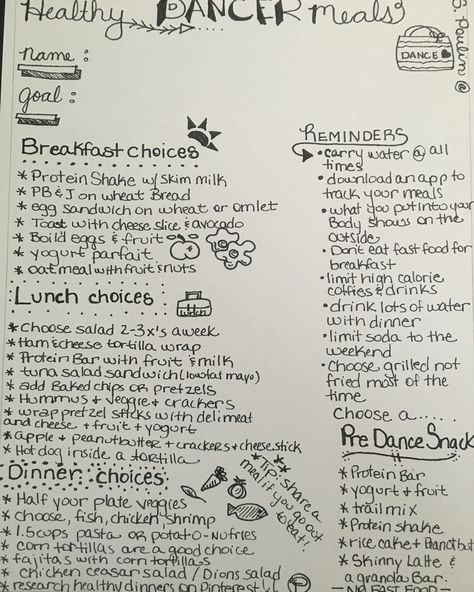 Healthy DANCER meals
S. Paulin @
DANCE
name :
goal :
Breakfast choices
* Protein Shake w/ skim milk
* PB & J on wheat Bread
* egg sandwich on wheat or omlet
* Toast with cheese slice & avocado
* Boild eggs & fruit
* yogurt parfait
* oatmeal with fruit & nuts
Lunch choices
* Choose salad 2-3x's a week
* Ham & cheese tortilla wrap
* Protein Bar with fruit & milk
* tuna salad sandwich (lowfat mayo)
* add Baked chips or pretzels
* Hummus + veggie + crackers
* wrap pretzel sticks with deli meat
and cheese + fruit + yogurt
* apple + peanutbutter + crackers + cheese stick
* Hot dog inside a tortilla
Dinner choices
* Half your plate veggies
* choose, fish, chicken, shrimp
* 1.5 cups pasta or potato - no fries
* corn tortillas are a good choice
* fajitas with corn tortillas
* chicken ceasar salad / Dions salad
* research healthy dinners on Pinterest
* Try & share a
meal if you go out
to eat!
REMINDERS
• carry water @ all
times
• download an app to
track your meals
• what you put into your
Body shows on the
outside
• Don't eat fast food for
breakfast
• limit high calorie
coffies & drinks
• drink lots of water
with dinner
• limit soda to the
weekend
• choose grilled not
fried most of the
time
Choose a.....
Pre Dance Snack
* Protein Bar
* yogurt + fruit
* trail mix
* Protein shake
* rice cake + Peanut but
* Skinny Latte &
a granola Bar.
— NO FAST FOOD —